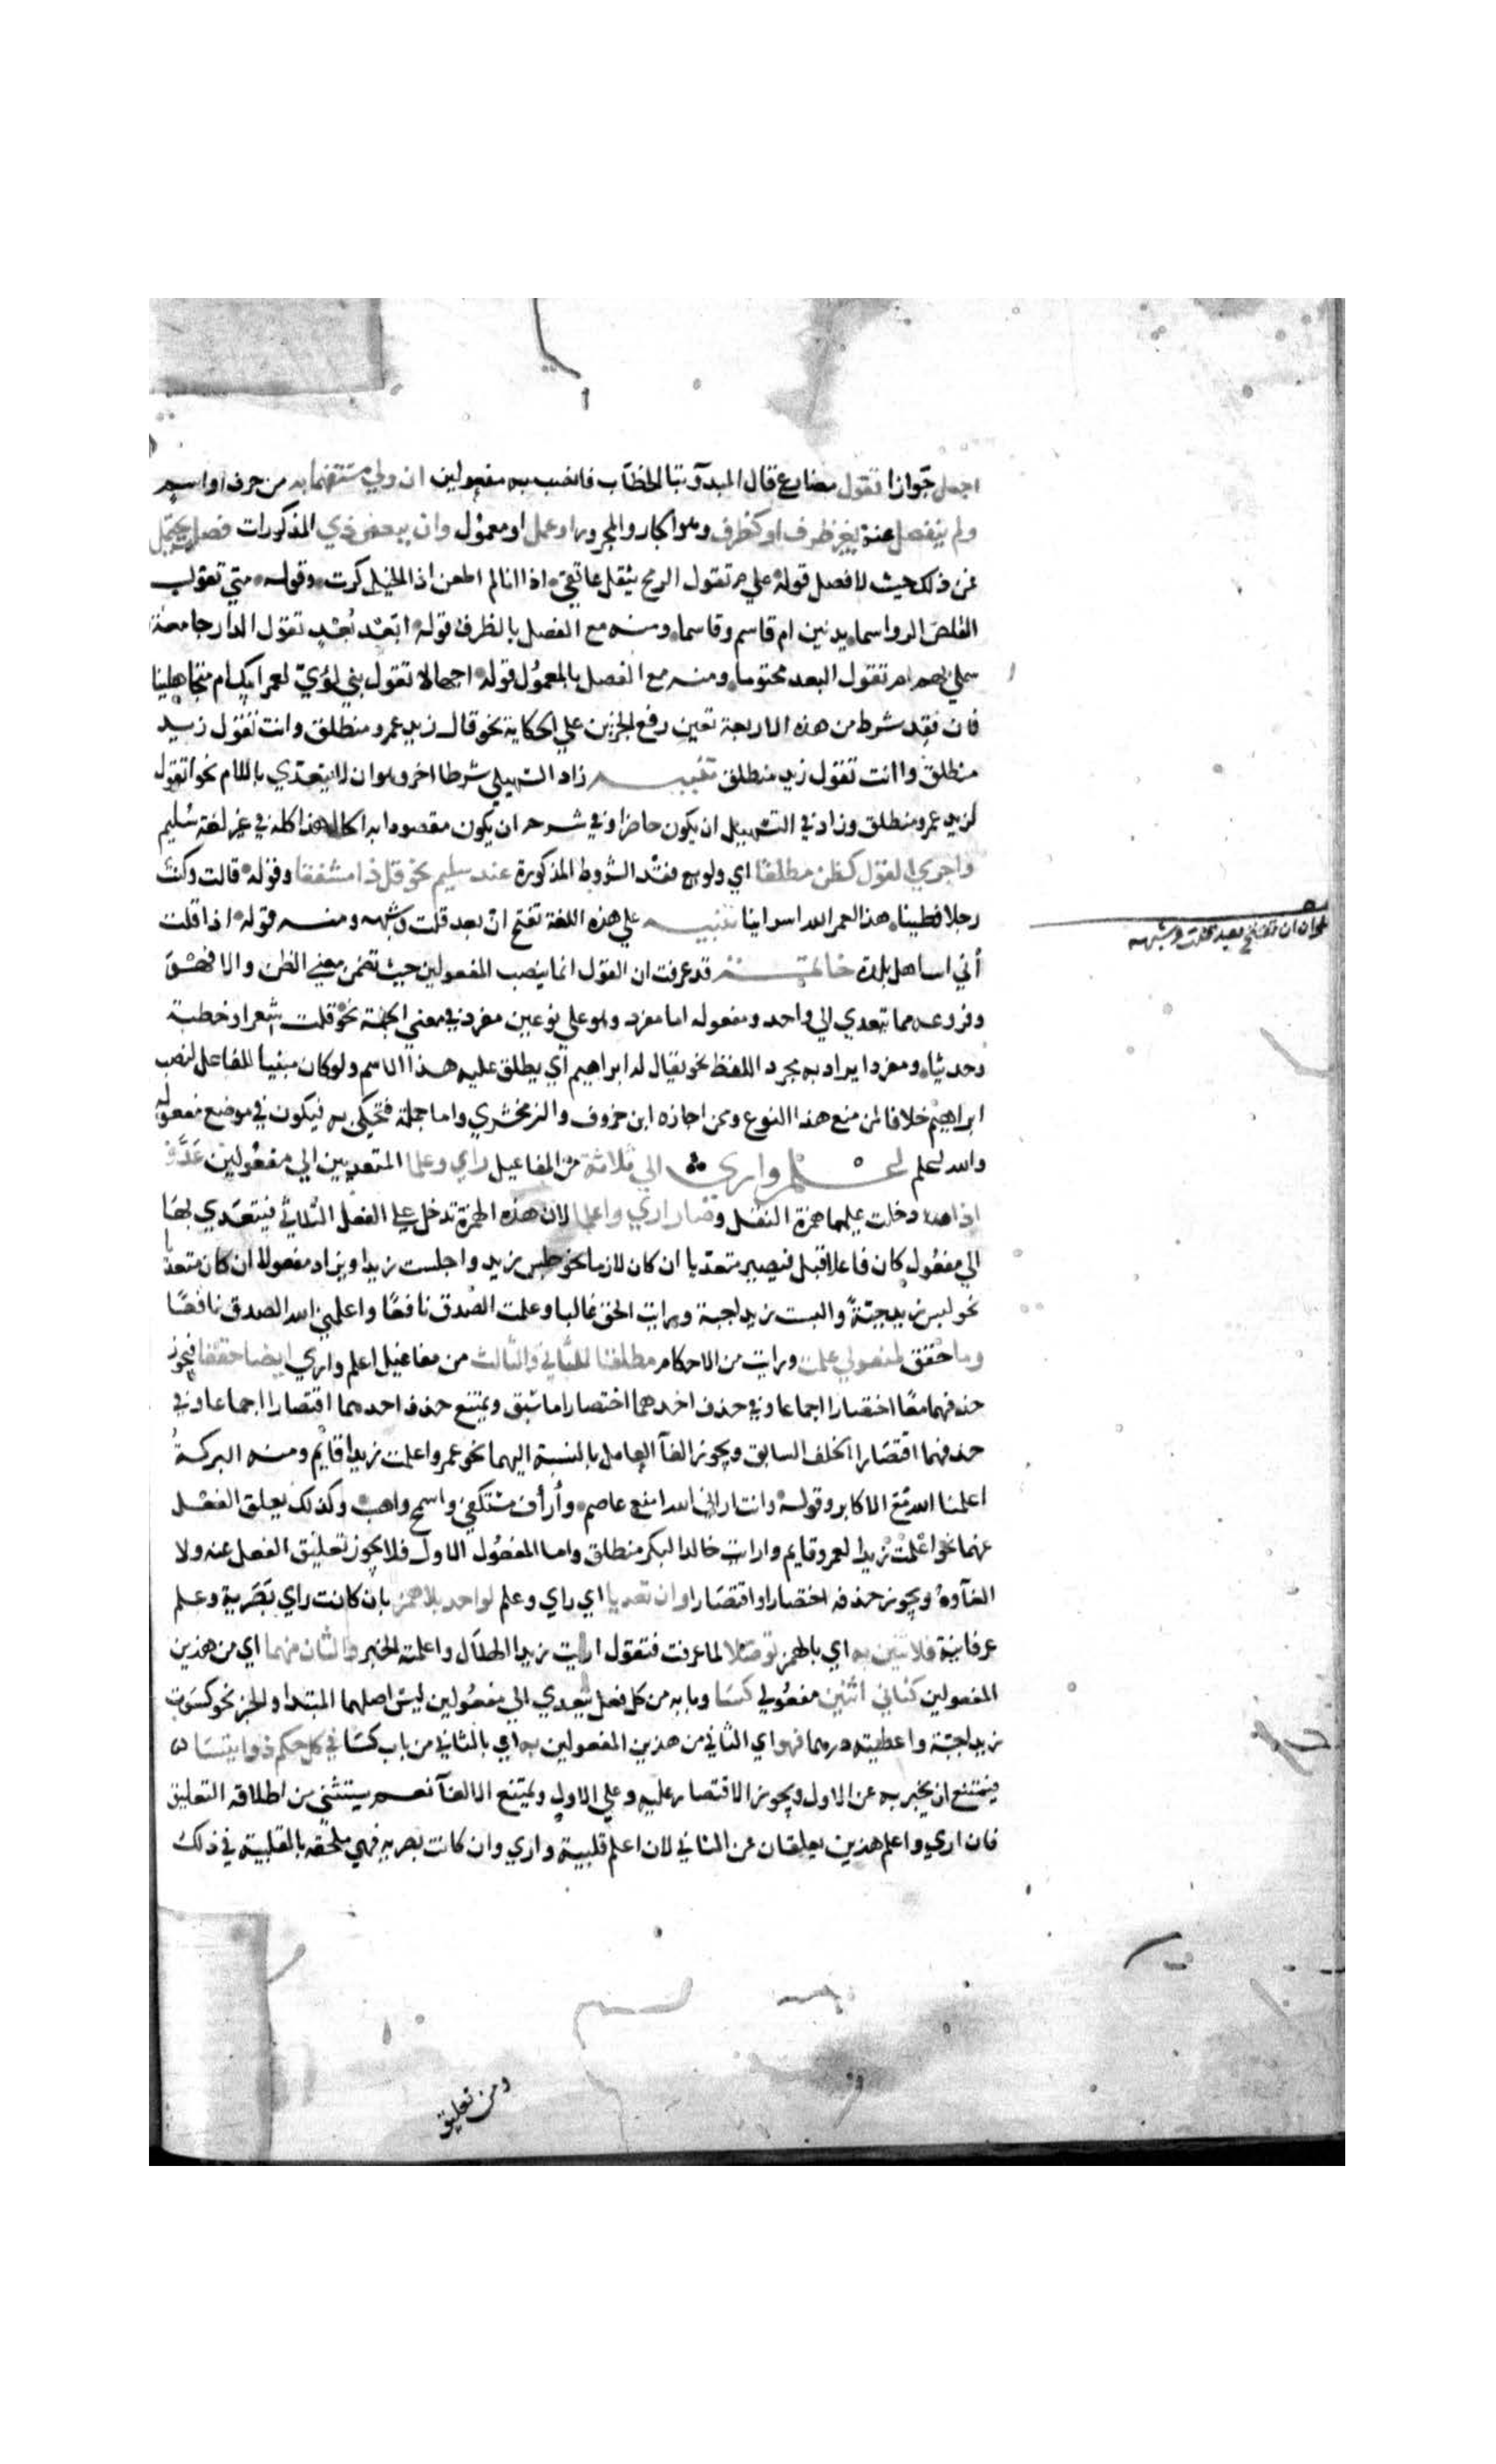 اجعل جوازا تقول مضارع قال المبدو بتا الخطاب فانصب به مفعولين ان ولي مستفهما به من حرف او اسم
ولم ينفصل عنه بغير ظرف او كظرف وهو الجار والمجرور او عمل او معمول وان ببعض ذي المذكورات فصل يحتمل
فمن ذلك حيث لا فصل قوله علام تقول الرمح يثقل عاتقي اذا انا لم اطعن اذا الخيل كرت وقوله متي تقول
القلص الرواسما يدنين ام قاسم وقاسما ومنه مع الفصل بالظرف قوله ابعد بعد تقول الدار جامعة
شملي بهم ام تقول البعد محتوما ومنه مع الفصل بالمعمول قوله اجهالا تقول بني لؤي لعمر ابيك ام متجاهلينا
فان فقد شرط من هذه الاربعة تعين رفع الجزين علي الحكاية نحو قال زيد عمرو منطلق وانت تقول زيد
منطلق وا انت تقول زيد منطلق تنبيه زاد السهيلي شرطا اخر وهو ان لا يتعدي باللام نحو اتقول
لزيد عمرو منطلق وزاد في التسهيل ان يكون حاضرا وفي شرحه ان يكون مقصودا به الحال هذا كله في غير لغة سليم
واجري القول كظن مطلقا اي ولو مع فقد الشروط المذكورة عند سليم نحو قل ذا مشفقا وقوله قالت وكنت
رجلا فطينا هذا لعمر الله اسرائينا تنبيه علي هذه اللغة تفتح ان بعد قلت وشبهه ومنه قوله اذا قلت
أني اسا اهل بلدة خاتمة قد عرفت ان القول انما ينصب المفعولين حيث تضمن معني الظن والا فهو
وفروعه مما يتعدي الي واحد ومفعوله اما مفرد وهو علي نوعين مفرد في معني الجملة نحو قلت شعرا وخطبة
وحديثا ومفردا يراد به مجرد اللفظ نحو يقال له ابراهيم اي يطلق عليه هذا الاسم ولو كان مبنيا للفاعل لنصب
ابراهيم خلافا لمن منع هذا النوع وممن اجازه ابن خروف والزمخشري واما جملة فتحكي به فيكون في موضع مفعوله
والله اعلم اعلم واري الي ثلاثة من المفاعيل راي وعلما المتعديين الي مفعولين عدوا
اذا دخلت عليهما همزة النقل وصار اري واعلما لان هذه الهمزة تدخل علي الفعل الثلاثي فيتعدي بها
الي مفعول كان فاعلا قبل فيصير متعديا ان كان لازما نحو جلس زيد واجلست زيدا ويزاد مفعولا ان كان متعديا
نحو لبس زيد جبة والبست زيدا جبة ورايت الحق غالبا وعلمت الصدق نافعا واعلمني الله الصدق نافعا
وما حقق لمفعولي علمت ورايت من الاحكام مطلقا للثاني والثالث من مفاعيل اعلم واري ايضا حققا فيجوز
حذفهما معا اختصارا اجماعا وفي حذف احدهما اختصارا ما سبق ويمتنع حذف احدهما اقتصارا اجماعا وفي
حذفهما اقتصارا الخلف السابق ويجوز الغا العامل بالنسبة اليهما نحو عمرو اعلمت زيدا قايم ومنه البركة
اعلمنا الله مع الاكابر وقوله وانت اراني الله امنع عاصم وأرأف مستكفي واسمح واهب وكذلك يعلق الفعل
عنهما نحو اعلمت زيدا لعمرو قايم واريت خالدا لبكر منطلق واما المفعول الاول فلا يجوز تعليق الفعل عنه ولا
الغاوه ويجوز حذفه اختصارا واقتصارا وان تعديا اي راي وعلم لواحد بلا همز بان كانت راي بصرية وعلم
عرفانية فلاثنين به اي بالهمز توصلا لما عرفت فتقول اريت زيدا الهلال واعلمته الخبر والثان منهما اي من هذين
المفعولين كثاني اثنين مفعولي كسا وبابه من كل فعل يتعدي الي مفعولين ليس اصلهما المبتدا والخبر نحو كسوت
زيدا جبة واعطيته درهما فهو اي الثاني من هذين المفعولين به اي بالثاني من باب كسا في كل حكم ذو ايتسا
فيمتنع ان يخبر به عن الاول ويجوز الاقتصار عليه وعلي الاول ويمتنع الالغا نعم يستثني من اطلاقه التعليق
فان اري واعلم هذين يعلقان عن الثاني لان اعلم قلبية واري وان كانت بصرية فهي ملحقة بالقلبية في ذلك
ان تفتح بعد قلت وشبهه
ومن تعليق